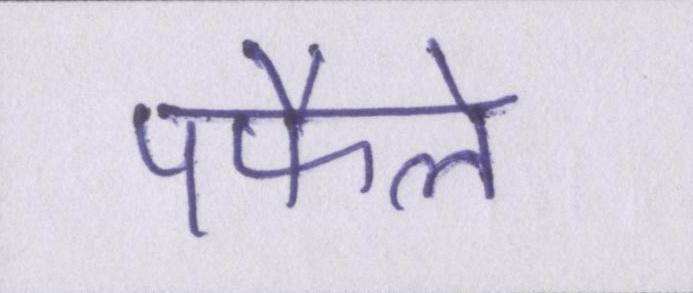 पफैले